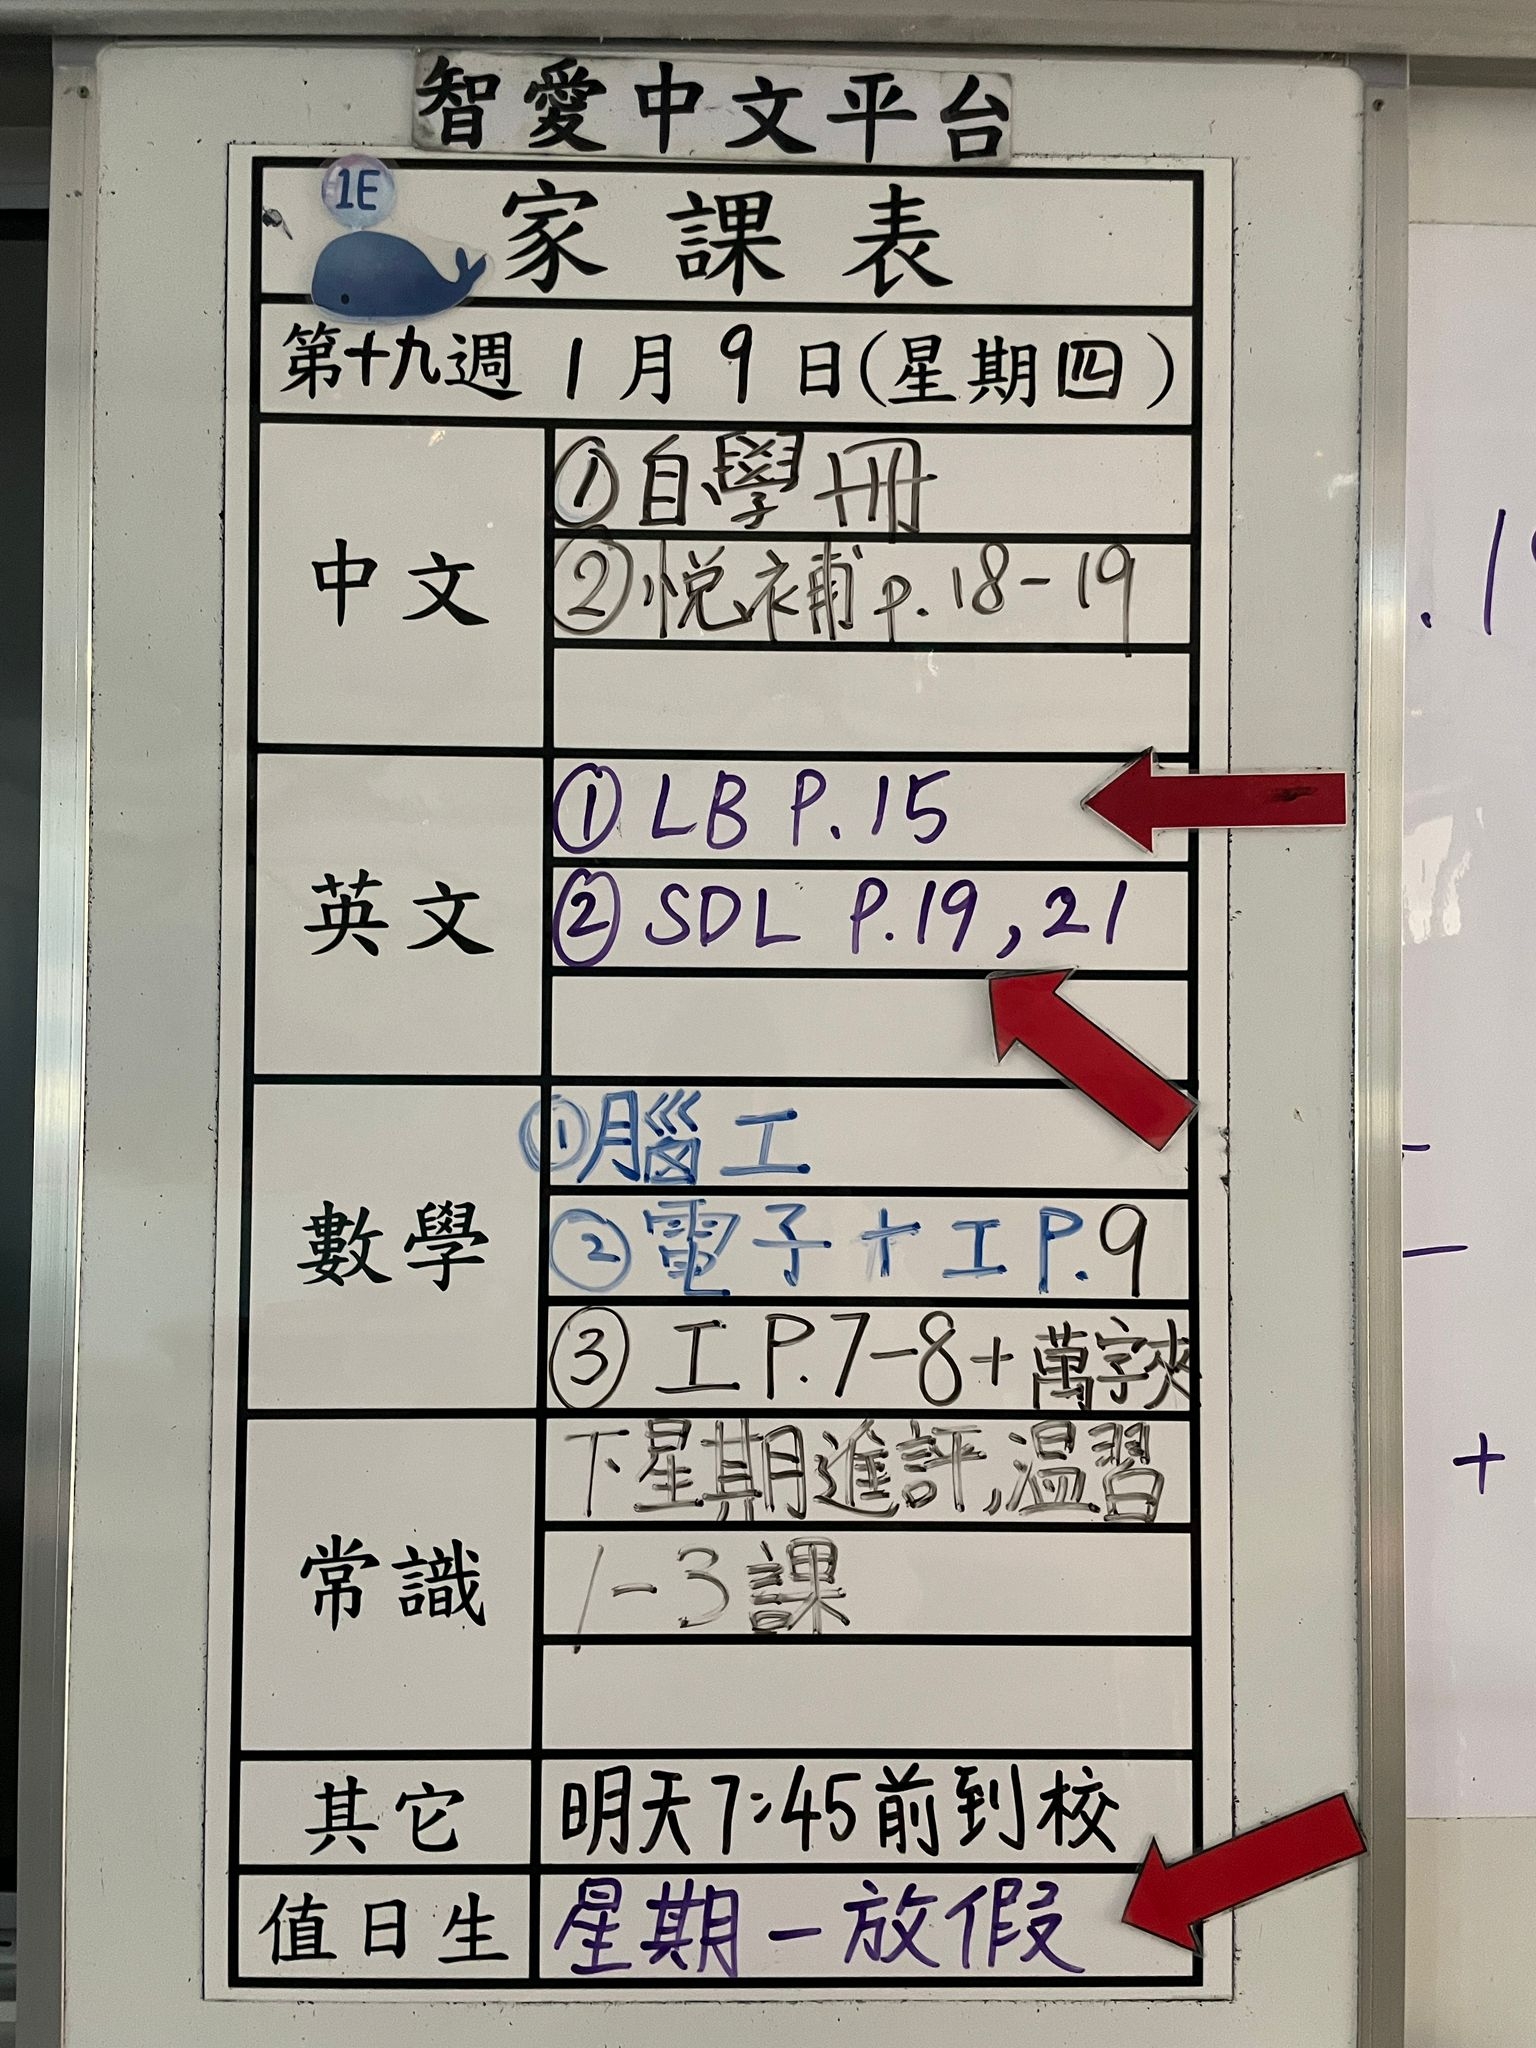 智愛中文平台
1E
家課表
第十九週 1月9日(星期四)
中文
①自學冊
②悅補p.18-19
英文
①LB P.15
②SDL P.19,21
數學
①腦工
②電子+工P.9
③工P.7-8+萬字夾
常識
下星期進評,温習
1-3課
其它
明天7:45前到校
值日生
星期一放假